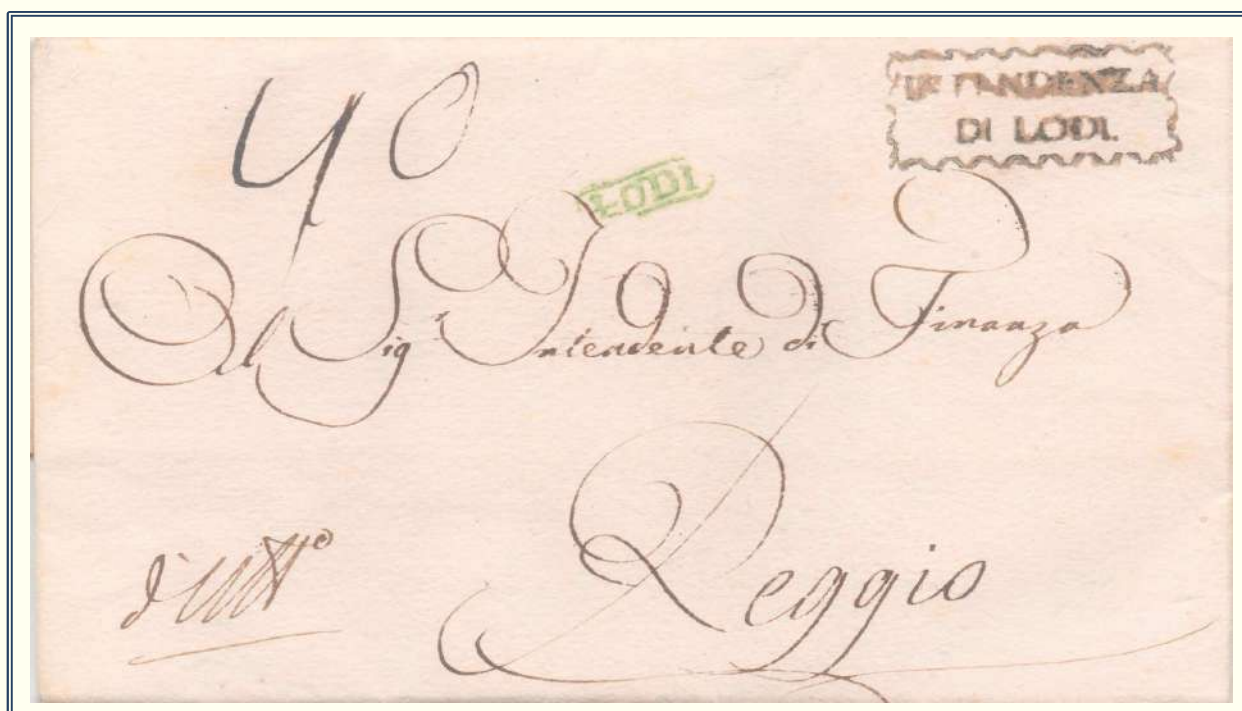 40
INTENDENZA
DI LODI.
LODI
Al Sig.r Intendente di Finanza
Reggio
d'Uff°